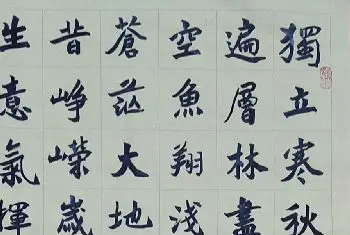 獨立寒秋
遍層林盡
空魚翔淺
蒼茫大地
昔崢嶸歲
生意氣揮